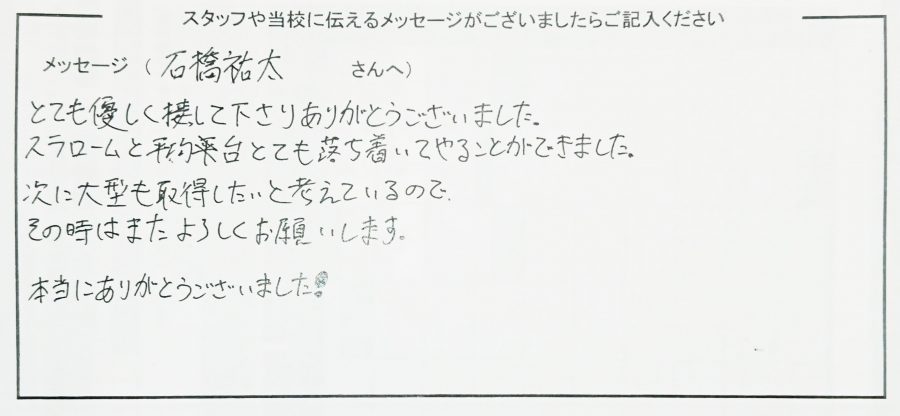 スタッフや当校に伝えるメッセージがございましたらご記入ください
メッセージ（石橋祐太 さんへ）
とても優しく接して下さりありがとうございました。
スラロームと平均台とても落ち着いてやることができました。
次に大型も取得したいと考えているので、
その時はまたよろしくお願いします。
本当にありがとうございました!